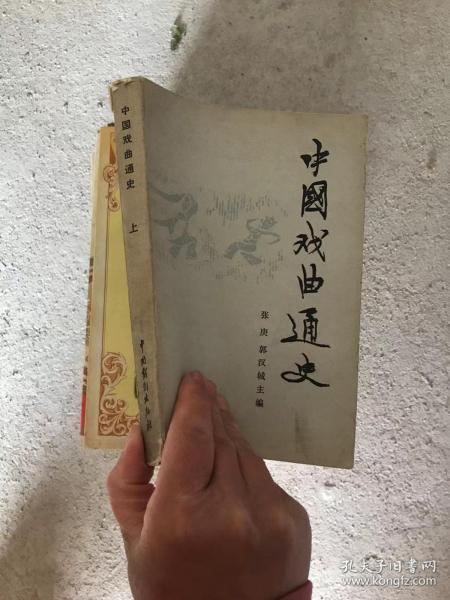 中国戏曲通史
上
中国戏剧出版社
中國戏曲通史
张庚 郭汉城主编
孔夫子旧书网
www.kongfz.com